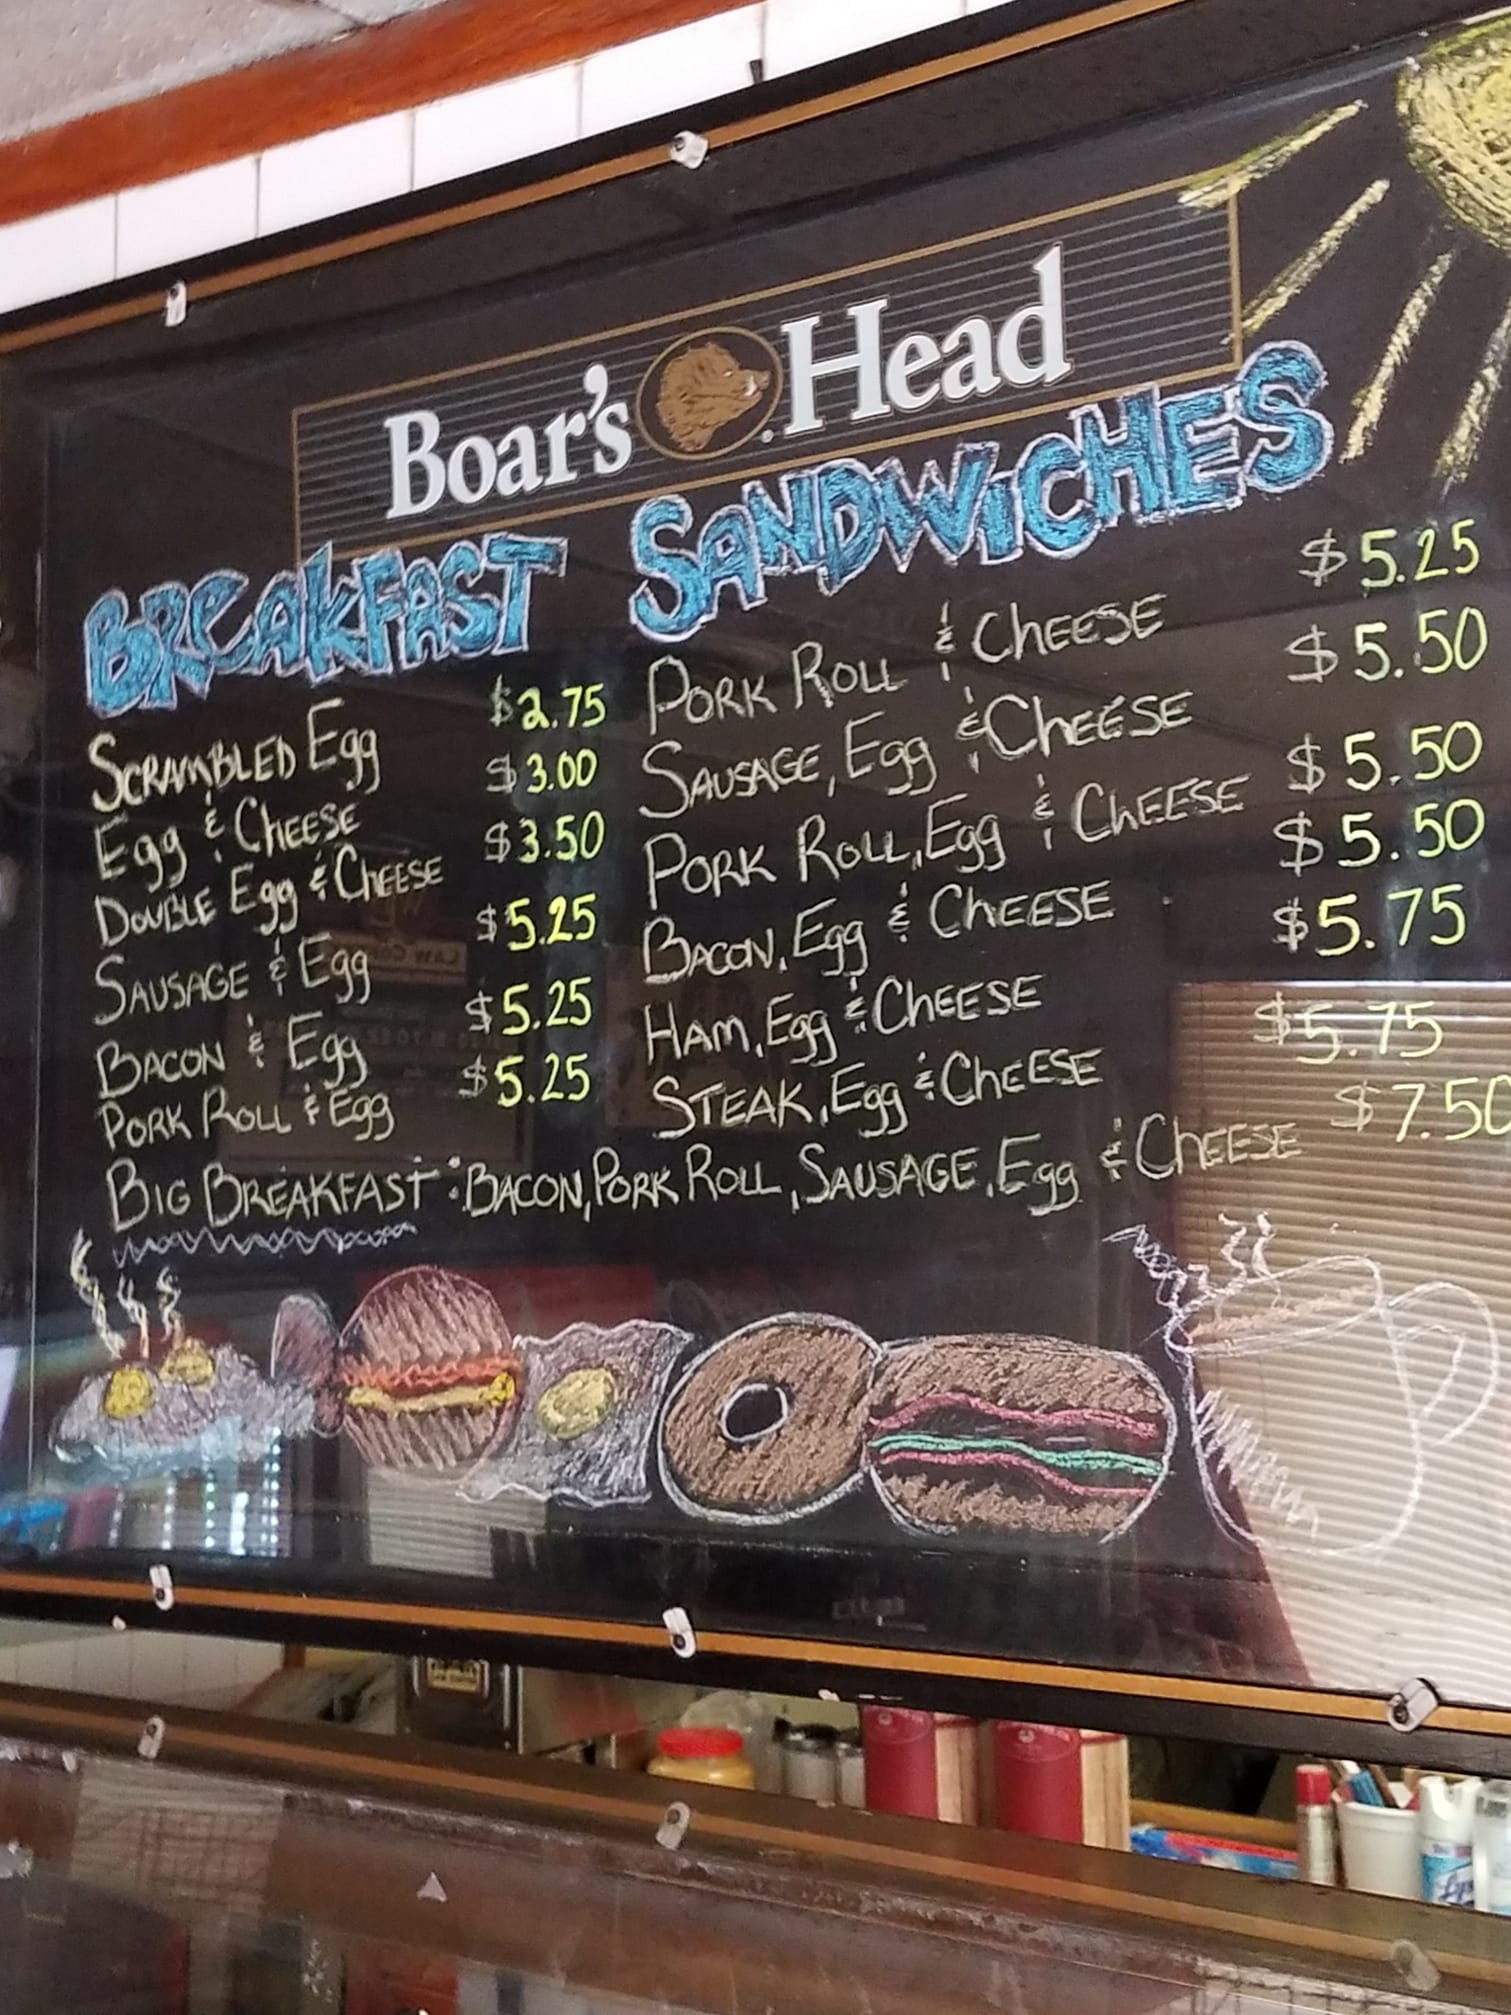 Boar's Head
BREAKFAST SANDWICHES
SCRAMBLED Egg $2.75
Egg & CHEESE $3.00
DOUBLE Egg & CHEESE $3.50
SAUSAGE & Egg $5.25
BACON & Egg $5.25
PORK ROLL & Egg $5.25
PORK ROLL & CHEESE $5.25
SAUSAGE, Egg & CHEESE $5.50
PORK ROLL, Egg & CHEESE $5.50
BACON, Egg & CHEESE $5.50
HAM, Egg & CHEESE $5.75
STEAK, Egg & CHEESE $5.75
BIG BREAKFAST: BACON, PORK ROLL, SAUSAGE, Egg & CHEESE $7.50